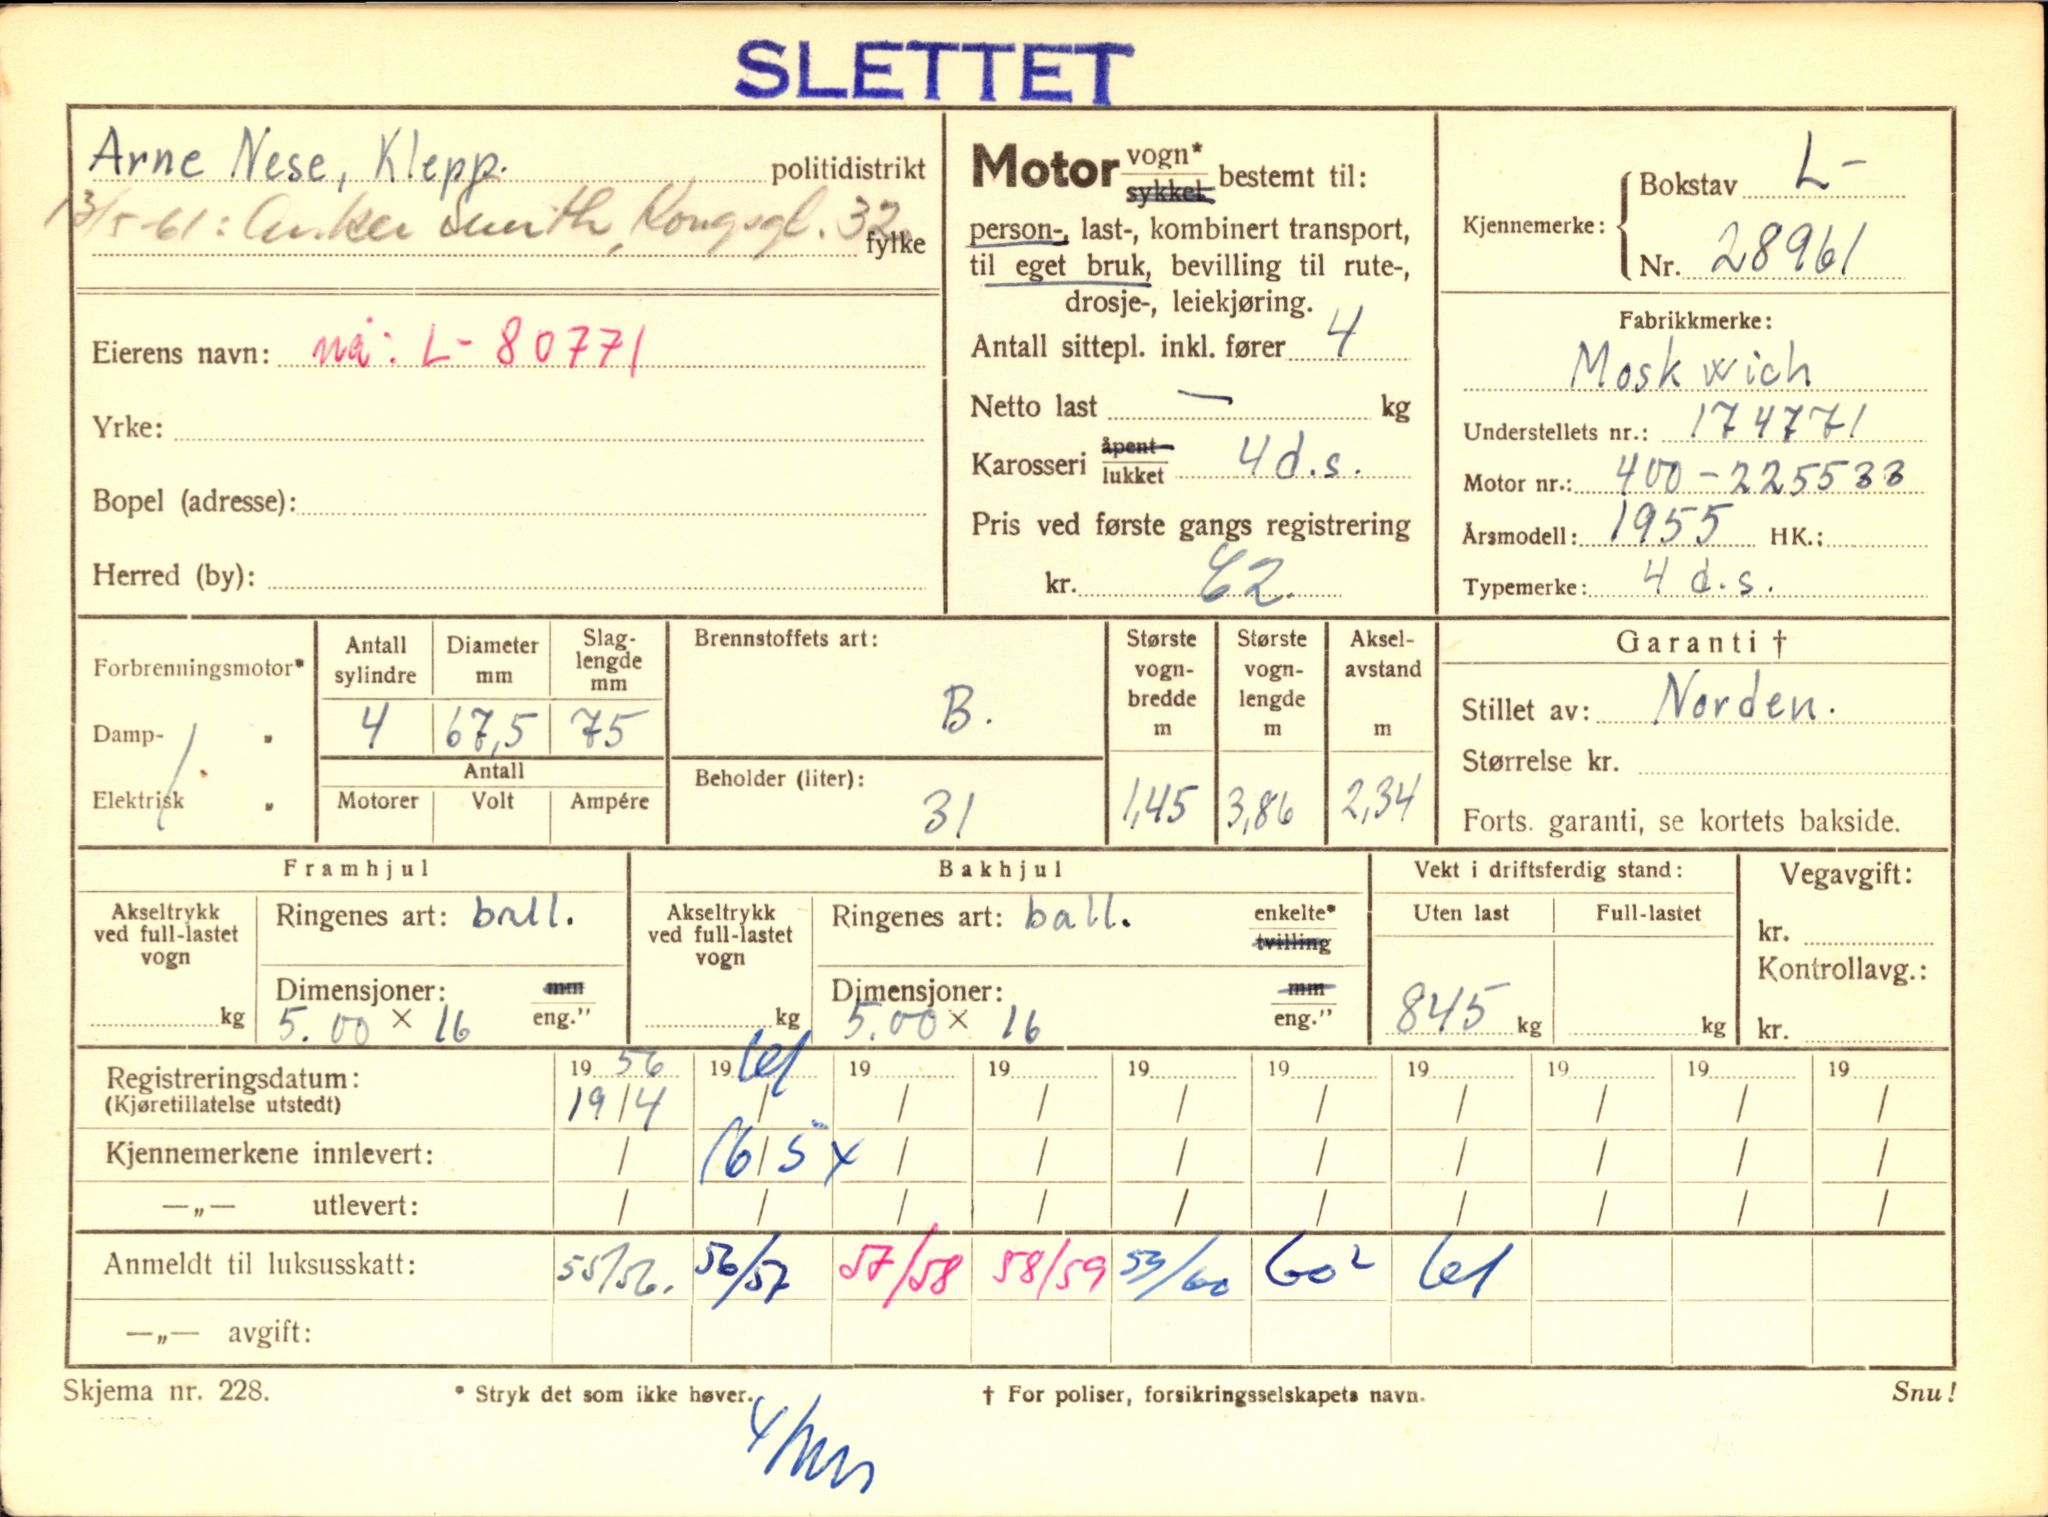 SLETTET
Arne Nese, Klepp. politidistrikt
13/5-61: Anker Smith, Kongsgt. 32 fylke
Eierens navn: nå: L- 80771
Yrke:
Bopel (adresse):
Herred (by):
Motor vogn* / sykkel bestemt til:
person-, last-, kombinert transport,
til eget bruk, bevilling til rute-,
drosje-, leiekjøring.
Antall sittepl. inkl. fører 4
Netto last — kg
Karosseri åpent / lukket 4 d.s.
Pris ved første gangs registrering
kr. 62.
Kjennemerke: Bokstav L-
Nr. 28961
Fabrikkmerke:
Moskwich
Understellets nr.: 174771
Motor nr.: 400-225533
Årsmodell: 1955 HK.:
Typemerke: 4 d.s.
Forbrenningsmotor*
Damp- „
Elektrisk „
Antall sylindre 4
Diameter mm 67,5
Slaglengde mm 75
Antall
Motorer Volt Ampére
Brennstoffets art:
B.
Beholder (liter):
31
Største vognbredde m 1,45
Største vognlengde m 3,86
Akselavstand m 2,34
Garanti †
Stillet av: Norden.
Størrelse kr.
Forts. garanti, se kortets bakside.
Framhjul
Akseltrykk ved full-lastet vogn
kg
Ringenes art: ball.
Dimensjoner: mm / eng.”
5.00 × 16
Bakhjul
Akseltrykk ved full-lastet vogn
kg
Ringenes art: ball. enkelte* / tvilling
Dimensjoner: mm / eng.”
5.00 × 16
Vekt i driftsferdig stand:
Uten last Full-lastet
845 kg kg
Vegavgift:
kr.
Kontrollavg.:
kr.
Registreringsdatum: 19 56 19 61 19 19 19 19 19 19 19 19
(Kjøretillatelse utstedt) 19/4 / / / / / / / / /
Kjennemerkene innlevert: / 16/5 x / / / / / / / /
—„— utlevert: / / / / / / / / / /
Anmeldt til luksusskatt: 55/56. 56/57 57/58 58/59 59/60 60² 61
—„— avgift:
Skjema nr. 228. * Stryk det som ikke høver. † For poliser, forsikringsselskapets navn. Snu!